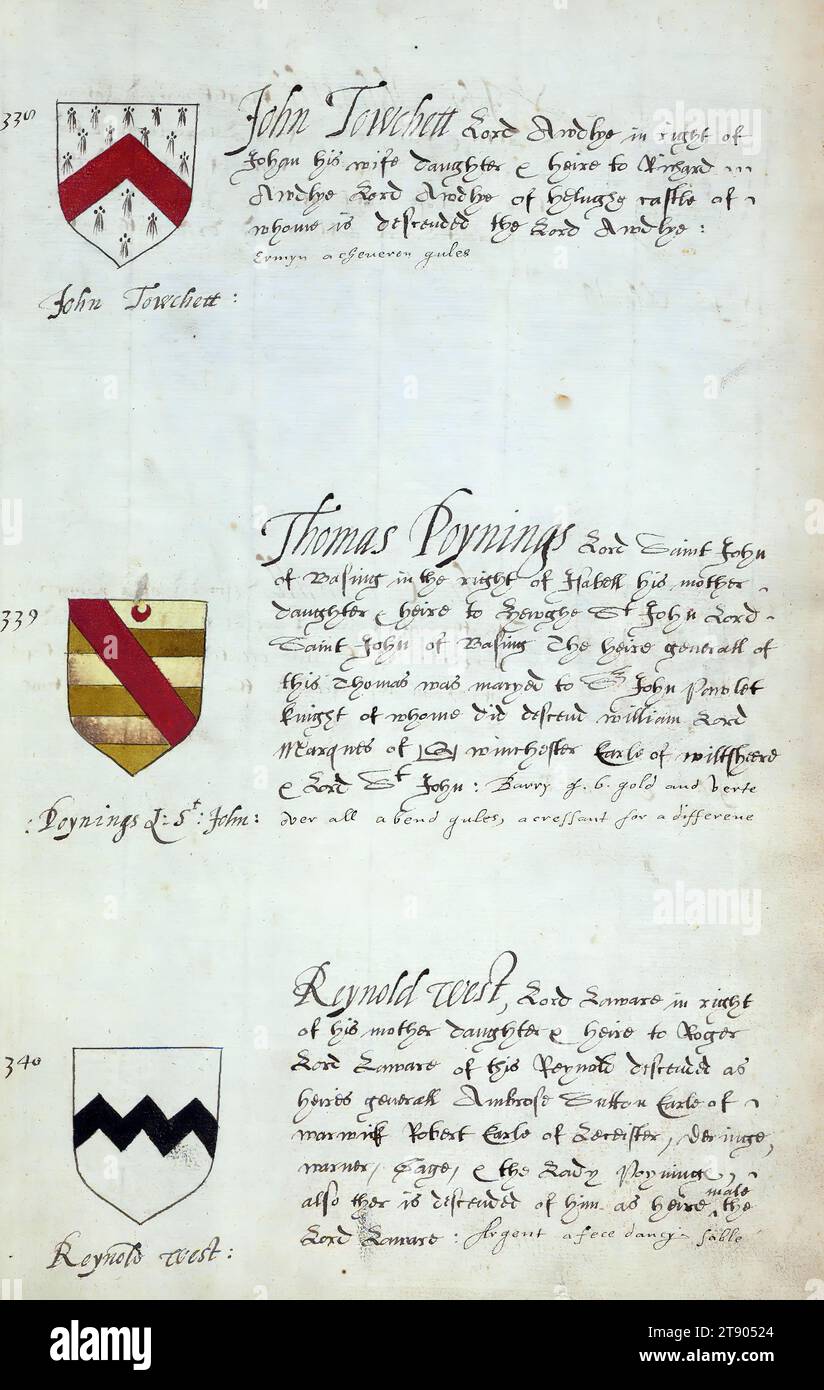 338
John Towchett Lord Awdlye in right of
Johan his wife daughter & heire to Richard
Awdlye Lord Awdlye of castle of
whome is descended the Lord Awdlye:
Ermyn a cheveron gules
John Towchett:
339
Thomas Poynings Lord Saint John
of Basing in the right of Isabell his mother
daughter & heire to Hewghe St John Lord
Saint John of Basing The heire generall of
this Thomas was maryed to Sr John Pawlet
knight of whome did descend william Lord
Marques of winchester Earle of wiltsheere
& Lord St John: Barry of .6. gold and verte
over all a bend gules, a cressant for a differene
: Poynings L: St: John:
340
Reynold West, Lord Laware in right
of his mother daughter & heire to Roger
Lord Laware of this Reynold descended as
heires generall Ambrose Sutton Earle of
warwik Robert Earle of Leceister, Deringe,
warner, Gage, & the Lady Poyninge,
also ther is descended of him as heire male the
Lord Laware: Argent a fece dancy sable
Reynold West:
alamy
Image ID: 2T90524
www.alamy.com